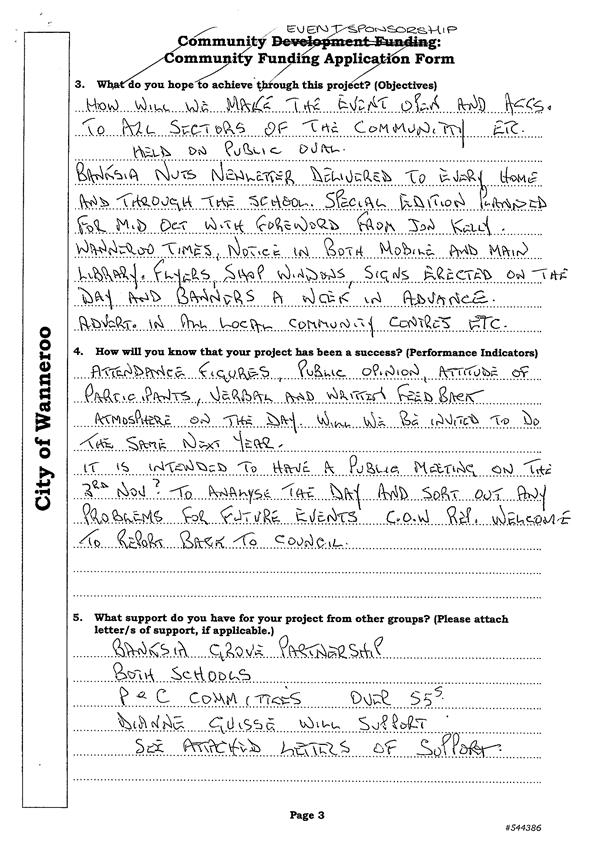 EVENT SPONSORSHIP
Community Development Funding:
Community Funding Application Form
3. What do you hope to achieve through this project? (Objectives)
HOW WILL WE MAKE THE EVENT OPEN AND ACCS.
TO ALL SECTORS OF THE COMMUNITY ETC.
HELD ON PUBLIC OVAL.
BANKSIA NUTS NEWLETTER DELIVERED TO EVERY HOME
AND THROUGH THE SCHOOL. SPECIAL EDITION PLANNED
FOR MID OCT WITH FOREWORD FROM JON KELLY.
WANNEROO TIMES, NOTICE IN BOTH MOBILE AND MAIN
LIBRARY. FLYERS, SHOP WINDOWS, SIGNS ERECTED ON THE
DAY AND BANNERS A WEEK IN ADVANCE.
ADVERT. IN ALL LOCAL COMMUNITY CENTRES ETC.
4. How will you know that your project has been a success? (Performance Indicators)
ATTENDANCE FIGURES, PUBLIC OPINION, ATTITUDE OF
PARTICIPANTS, VERBAL AND WRITTEN FEEDBACK
ATMOSPHERE ON THE DAY. WILL WE BE INVITED TO DO
THE SAME NEXT YEAR.
IT IS INTENDED TO HAVE A PUBLIC MEETING ON THE
3RD NOV? TO ANALYSE THE DAY AND SORT OUT ANY
PROBLEMS FOR FUTURE EVENTS C.O.W REP. WELCOME
TO REPORT BACK TO COUNCIL.
5. What support do you have for your project from other groups? (Please attach
letter/s of support, if applicable.)
BANKSIA GROVE PARTNERSHIP
BOTH SCHOOLS
P & C COMMITTEES OVER 55S
DIANNE GUISSE WILL SUPPORT
SEE ATTACHED LETTERS OF SUPPORT.
City of Wanneroo
Page 3
#544386